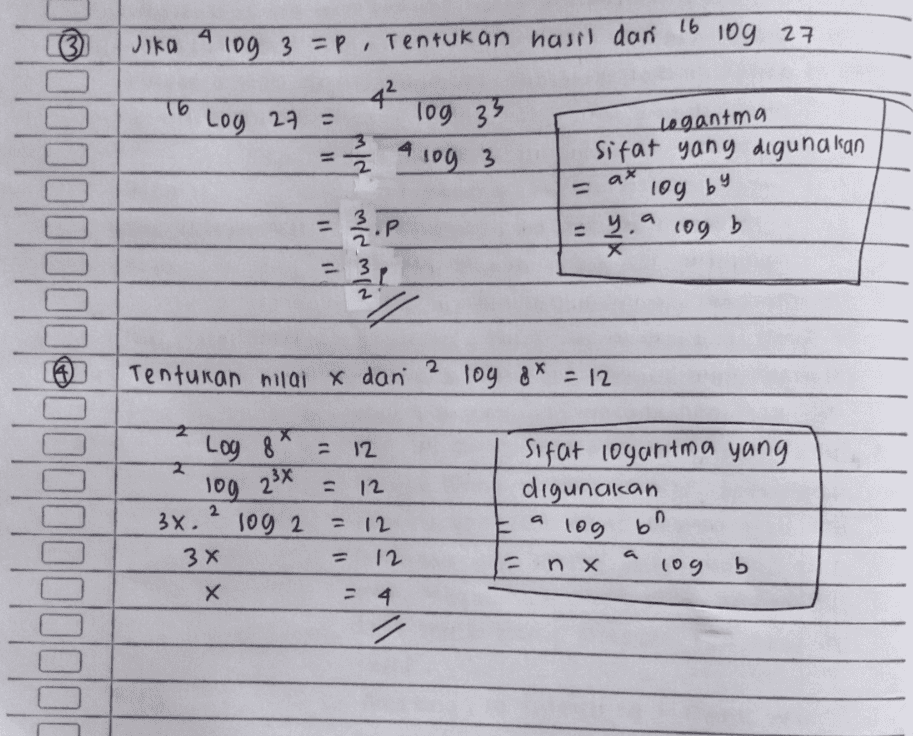 ③ Jika ⁴ log 3 = P, Tentukan hasil dari ¹⁶ log 27
¹⁶ Log 27 = ^4² log 3³
= 3/2 ⁴ log 3
= 3/2 . P
= 3/2 P
Logaritma
Sifat yang digunakan
= ᵃ^x log b^y
= y/x . ᵃ log b
④ Tentukan nilai x dari ² log 8ˣ = 12
² Log 8ˣ = 12
² log 2³ˣ = 12
3x . ² log 2 = 12
3x = 12
x = 4
Sifat logaritma yang
digunakan
= ᵃ log bⁿ
= n x ᵃ log b